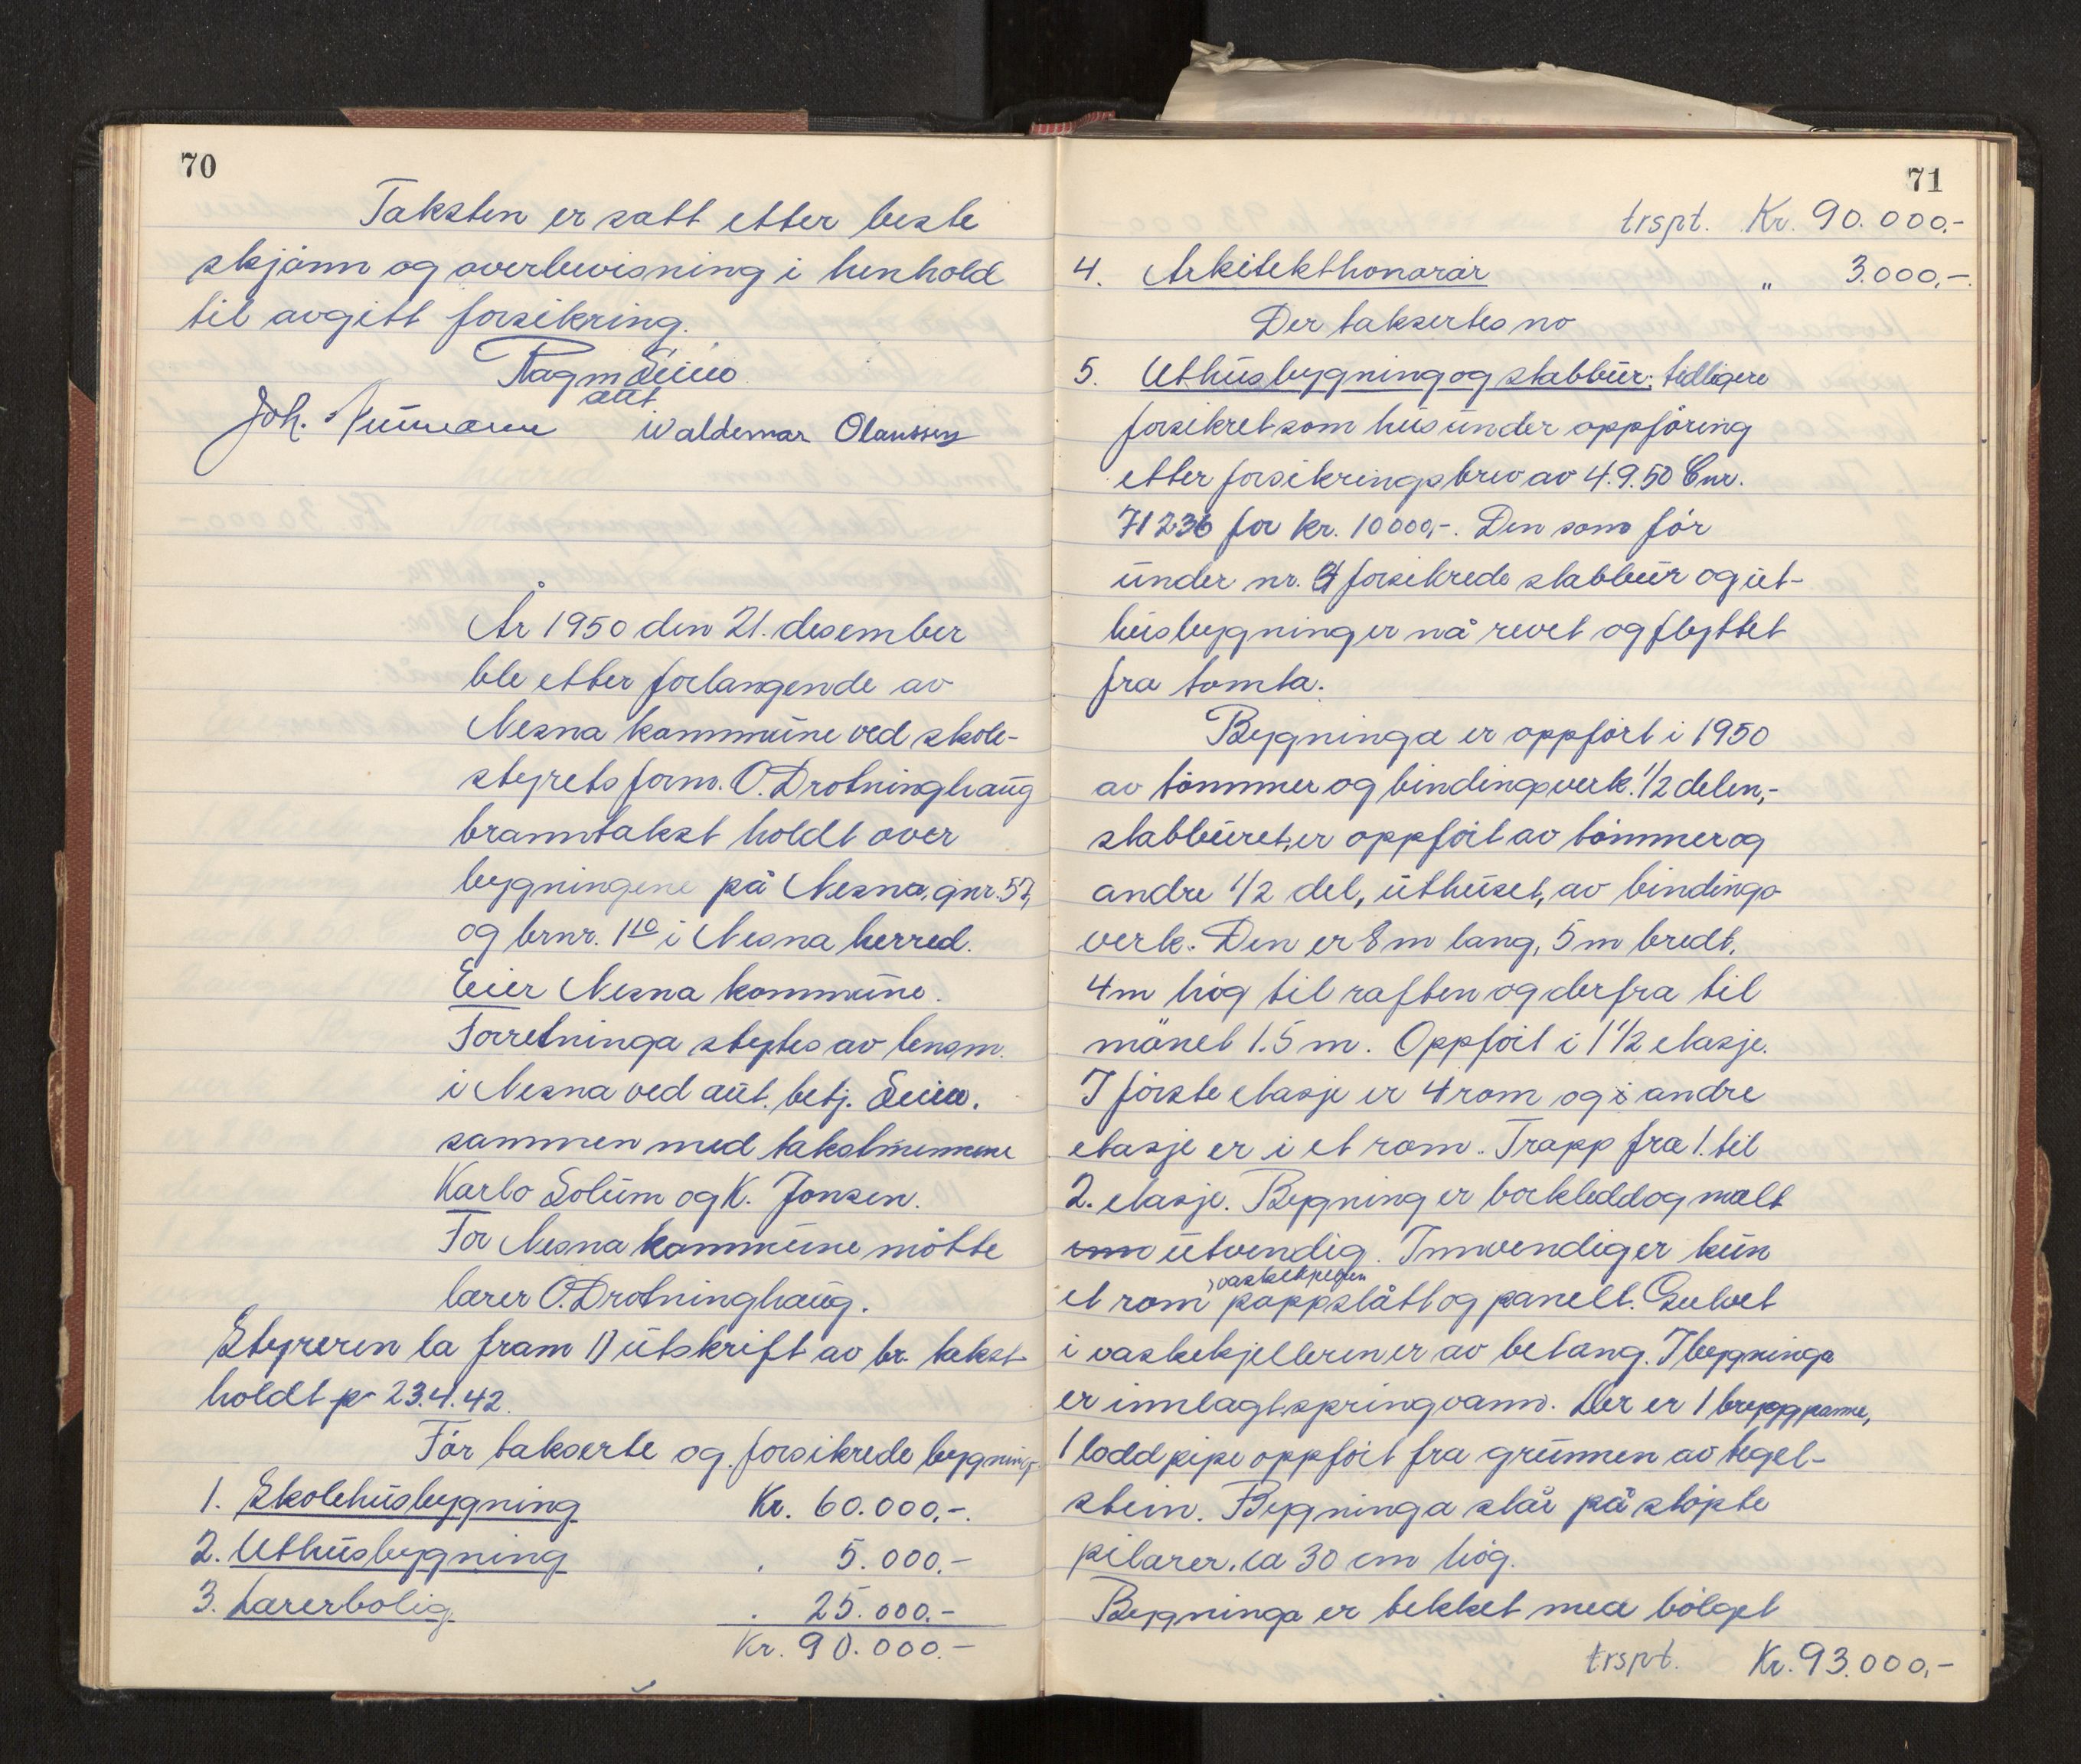 70
Taksten er satt etter beste
skjønn og overbevisning i henhold
til avgitt forsikring.
Ragnv Seines
aut
Joh. Neumann Waldemar Olaussen
År 1950 den 21. desember
ble etter forlangende av
Nesna kommune ved skole-
styrets form. O. Drotninghaug
branntakst holdt over
bygningene på Nesna, gnr. 57,
og brnr. 110 i Nesna herred.
Eier Nesna kommune.
Forretninga styrtes av lensm.
i Nesna ved aut. betj. Seines.
sammen med takstmennene
Karlo Solum og K. Jonsen.
For Nesna kommune møtte
lærer O. Drotninghaug.
Styreren la fram 1) utskrift av br. takst
holdt p 23.4.42.
Før takserte og forsikrede bygning.
1. Skolehusbygning Kr. 60.000,-.
2. Uthusbygning " 5.000,-
3. Lærerbolig " 25.000.-
Kr. 90.000.-
71
trspt. Kr. 90.000.-
4. Arkitekthonorar " 3.000,-.
Der taksertes no
5. Uthusbygning og stabbur; tidligere
forsikret som hus under oppføring
etter forsikringsbrev av 4.9.50 Cnr.
71236 for kr. 10000,-. Den som før
under nr. 4 forsikrede stabbur og ut-
husbygning er nå revet og flyttet
fra tomta.
Bygninga er oppført i 1950
av tømmer og bindingsverk. 1/2 delen,-
stabburet, er oppført av tømmer og
andre 1/2 del, uthuset, av bindings
verk. Den er 8 m lang, 5 m bredt,
4 m høg til raften og derfra til
mønet 1.5 m. Oppført i 1 1/2 etasje.
I første etasje er 4 rom og i andre
etasje er i et rom. Trapp fra 1. til
2. etasje. Bygning er bordkledd og malt
inn utvendig. Innvendig er kun
et rom, vaskekjellen pappslått og panelt. Gulvet
i vaskekjelleren er av betong. I bygninga
er innlagt springvann. Der er 1 bryggpanne,
1 lodd pipe oppført fra grunnen av tegel-
stein. Bygninga står på støpte
pilarer, ca 30 cm høg.
Bygninga er tekket med bølget
trspt. Kr. 93.000,-